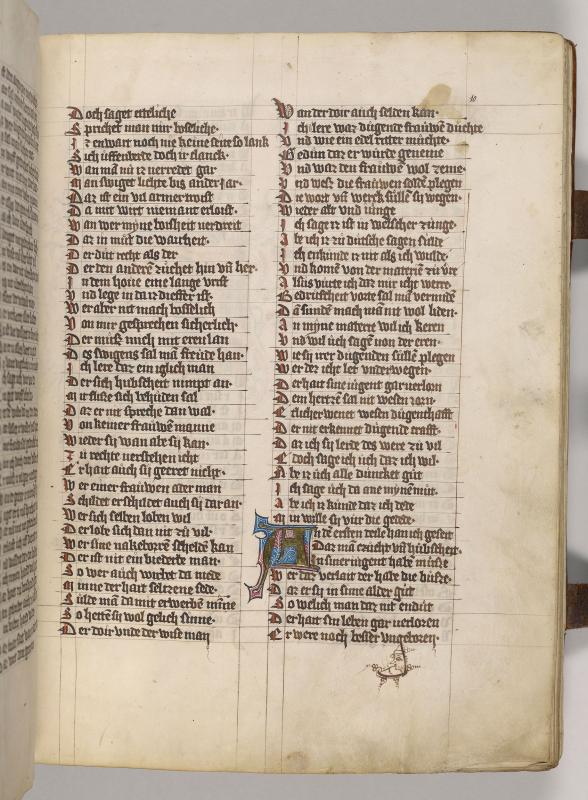 10
Doch saget etteliche
Sprichet man mir boseliche
Ich enwart noch nie keine seite so lank
Sich uffenberte doch ir clanck
Wan mā nū ir verredet gar
Man swiget lichte biz ander Jar
Daz ist ein vil armer trost
Da mit wirt niemant erloist
Wan wer myne boisheit verdreit
Daz in müst die warheit
Der düt recht als der
Der den anderē züchet hin vn̄ her
In dem houe eine lange vrist
Vnd lege in da ir dieffer ist
Wer aber nit mach bosselich
Von mir gesprechen sicherlich
Der müß mich mit eren lan
Des swigens sal mā freude han
Ich lere daz ein iglich man
Der sich hubscheit nimpt an
mit flisse sich behüden sal
Daz er nit spreche dan wal
Von keiner frauwē manne
Wieder sy wan abe sy kan
Zu rechte verstehen icht
Er hait auch sy geeret nicht
Wer einer frauwen ader man
Schildet er schildet auch sy dar an
Wer sich selben loben wil
Der lobe sich dan nit zü vil
Wer sine nakeborē scheldē kan
Der ist nit ein biederbe man
So wer auch wirbet da mede
minne der hait seltzene sede
Sülde mā da mit erwerbē mīne
So hettē sy wol gelich sinne
Der doir vnde der wise man
Wan der doir auch selden kan
Ich lere waz dügende frauwē düchte
Vnd wie ein edel ritter müchte
Gedün daz er würde geneme
Vnd waz den frauwē wol zeme
Vnd weß die frauwen soldē plegen
Die wort vn̄ werck süllē sy wegen
Wieder alt vnd iunge
Ich sage iz ist in welscher zünge
Abe ich iz zü dütsche sagen sulde
Ich enkunde iz nit als ich wulde
Vnd komē von der materiē zü vre
Alsüs würte ich daz mir icht werre
Gedrüscheit vorte sal mā vermidē
Dā sündē mach mā nit wol liden
An myne materie wil ich keren
Vnd wil üch sagē von der eren
Wie sy irer dügenden süllē plegen
Wer dez icht let vnderwegen
Der hait sine iügent gar verlorn
Dem hertzē sal nit wesen zorn
Etlicher wenet wesen dügenthafft
Der nit erkennet dügende crafft
Daz ich sy lerde des were zü vil
Doch sage ich üch daz ich wil
Abe iz üch alle düncket güt
Ich sage üch da ane mynē müt
Abe ich iz künde daz ich dede
In wisse sy vür die gebede
An dē ersten deile han ich geseit
Daz mā ezücht vn̄ hubscheit
In siner iügent habē müsse
Wer daz verlait der habe die büsse
Daz er sy in sime alder güt
So welich man daz nit endüt
Der hait sin leben gar verloren
Er were noch besser vngeboren